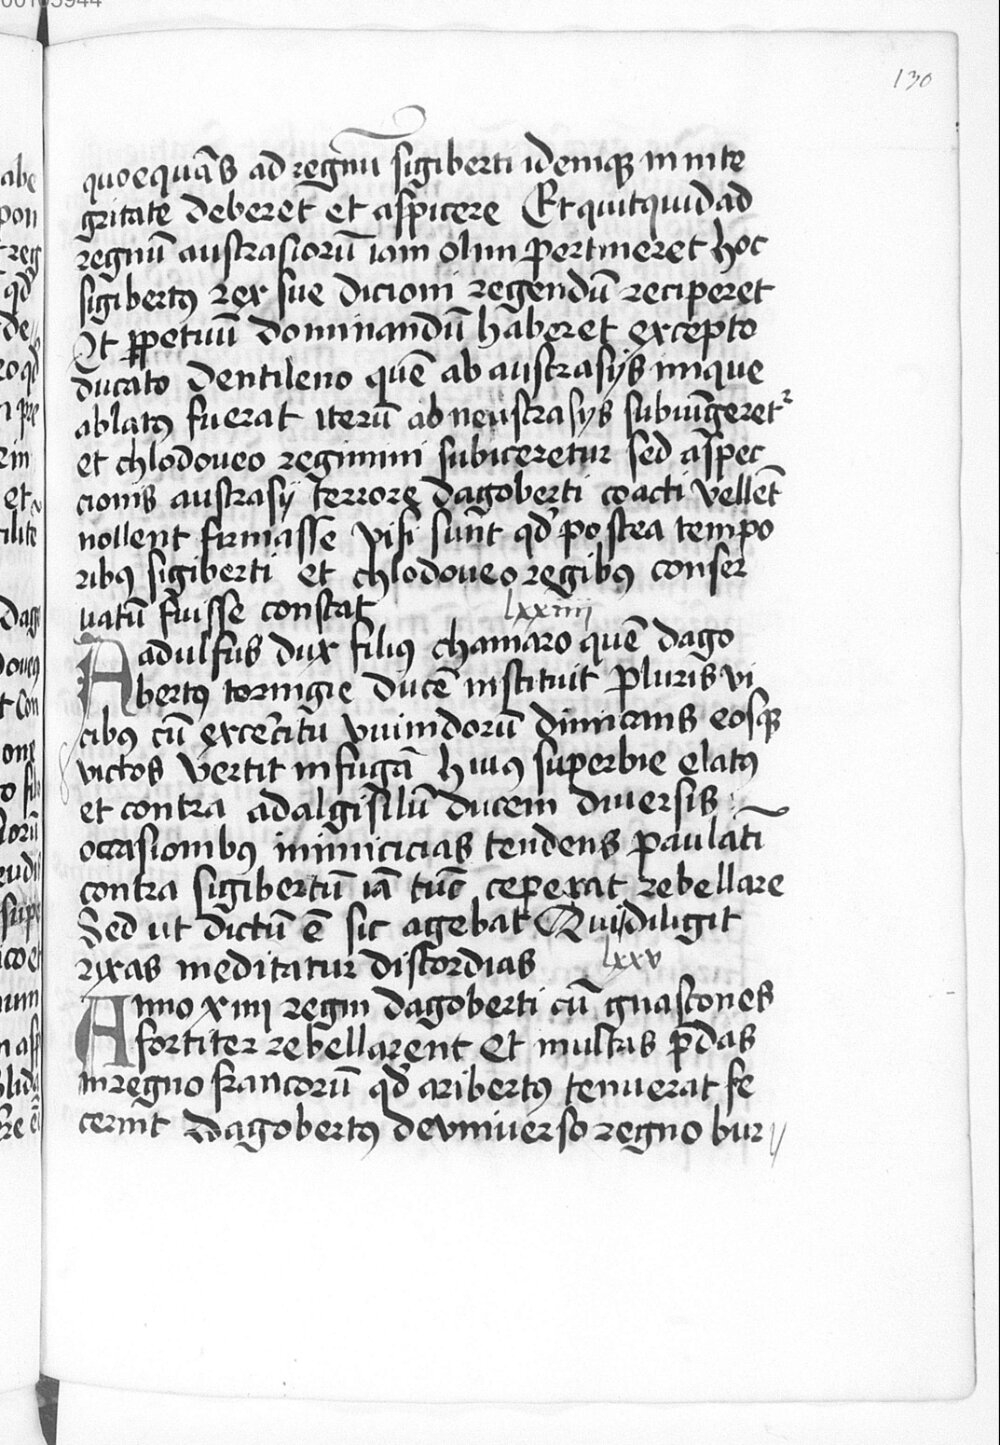 130
quoequās ad regnū sigiberti idemqꝫ in inte
gritate deberet et aspicere Et quitquid ad
regnū austrasiorū iam olim pertineret hoc
sigibertꝰ rex sue dicioni regendū reciperet
Et ꝑpetuū dominandū haberet excepto
ducato dentileno quē ab austrasÿs inique
ablatꝰ fuerat iterū ab neustrasÿs subiūgeretʳ
et chlodoueo regimini subiceretur sed aspec
cionis austrasÿ terrore dagoberti coacti vellēt
nollent firmasse visi sunt qđ postea tempo
ribꝰ sigiberti et chlodoueo regibꝰ conser
uatū fuisse constat
lxxiiii
Radulfus dux filiꝰ chamaro quē dago
bertꝰ toringie ducē instituit pluris vi
cibꝰ cū exercitu vuinidorū dimicans eosqꝫ
victos vertit in fugā hiuꝰ superbie elatꝰ
et contra adalgisilū ducem diuersis
occasionibꝰ inimicicias tendens paulatī
contra sigibertū iā tūc ceperat rebellare
Sed ut dictū ē sic agebat Qui diligit
rixas meditatur discordias
lxxv
Anno xiiii regni dagoberti cū guascones
fortiter rebellarent et multas p̄das
in regno francorū qđ aribertꝰ tenuerat fe
cerint dagobertꝰ de vniuerso regno bur